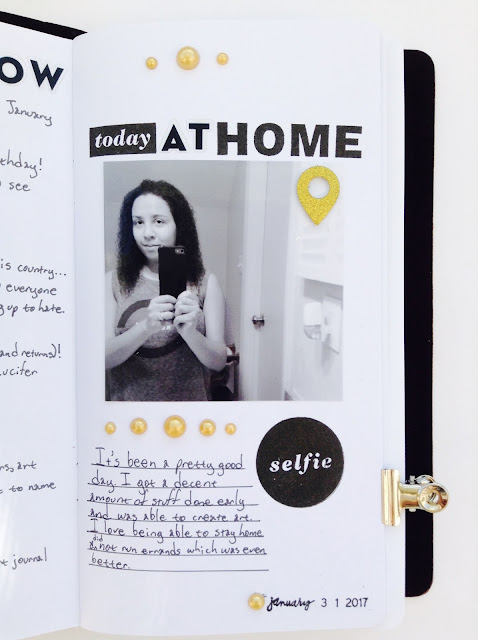 OW
January
thday!
see
is country...
everyone
g up to hate.
and returns)!
ucifer
rs, art
to name
t journal
today AT HOME
selfie
It's been a pretty good
day. I got a decent
amount of stuff done early
and was able to create art.
I love being able to stay home
& did not run errands which was even
better.
january 31 2017